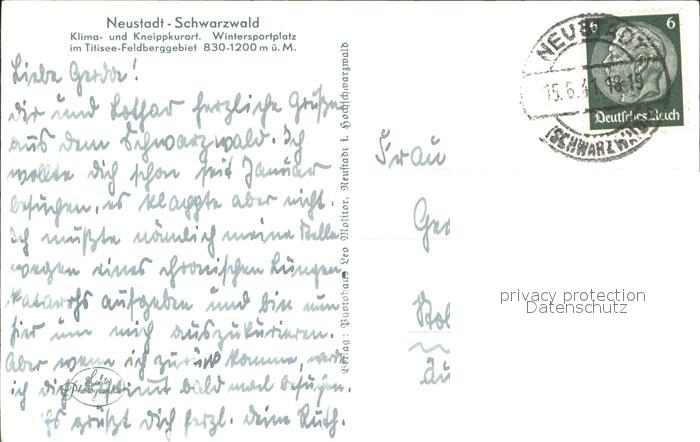 Neustadt - Schwarzwald
Klima- und Kneippkurort. Wintersportplatz
im Titisee-Feldberggebiet 830-1200 m ü. M.
Liebe Gerda!
dir und Lothar herzliche Grüße
aus dem Schwarzwald. Ich
wollte dich schon seit Januar
besuchen, es klappte aber nicht.
Ich mußte nämlich meine Stelle
wegen eines chronischen Lungen
katarrhs aufgeben und bin nun
hier um mich auszukurieren.
Aber wenn ich zurück komme, werde
ich dich bestimmt bald mal besuchen.
Es grüßt dich herzl. deine Ruth.
Verlag: Photohaus Leo Molitor, Neustadt i. Hochschwarzwald
NEUSTADT
15.6.41 18-19
(SCHWARZWALD)
6 6
Deutsches Reich
Frau
Ger
privacy protection
Datenschutz